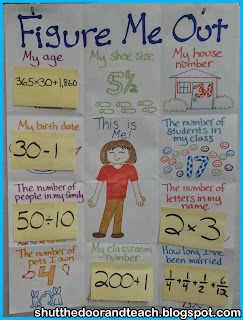 Figure Me Out
My age
365×30+1,860
My shoe size
5½
My house
number
My birth date
30-1
This is
Me!
The number of
students in
my class
17
The number of
people in my family
50÷10
The number of
letters in my
name
2×3
The number of
pets I own
4
My classroom
number
200+1
How long I've
been married
1/4+4/4+1/2+6/12
shutthedoorandteach.blogspot.com